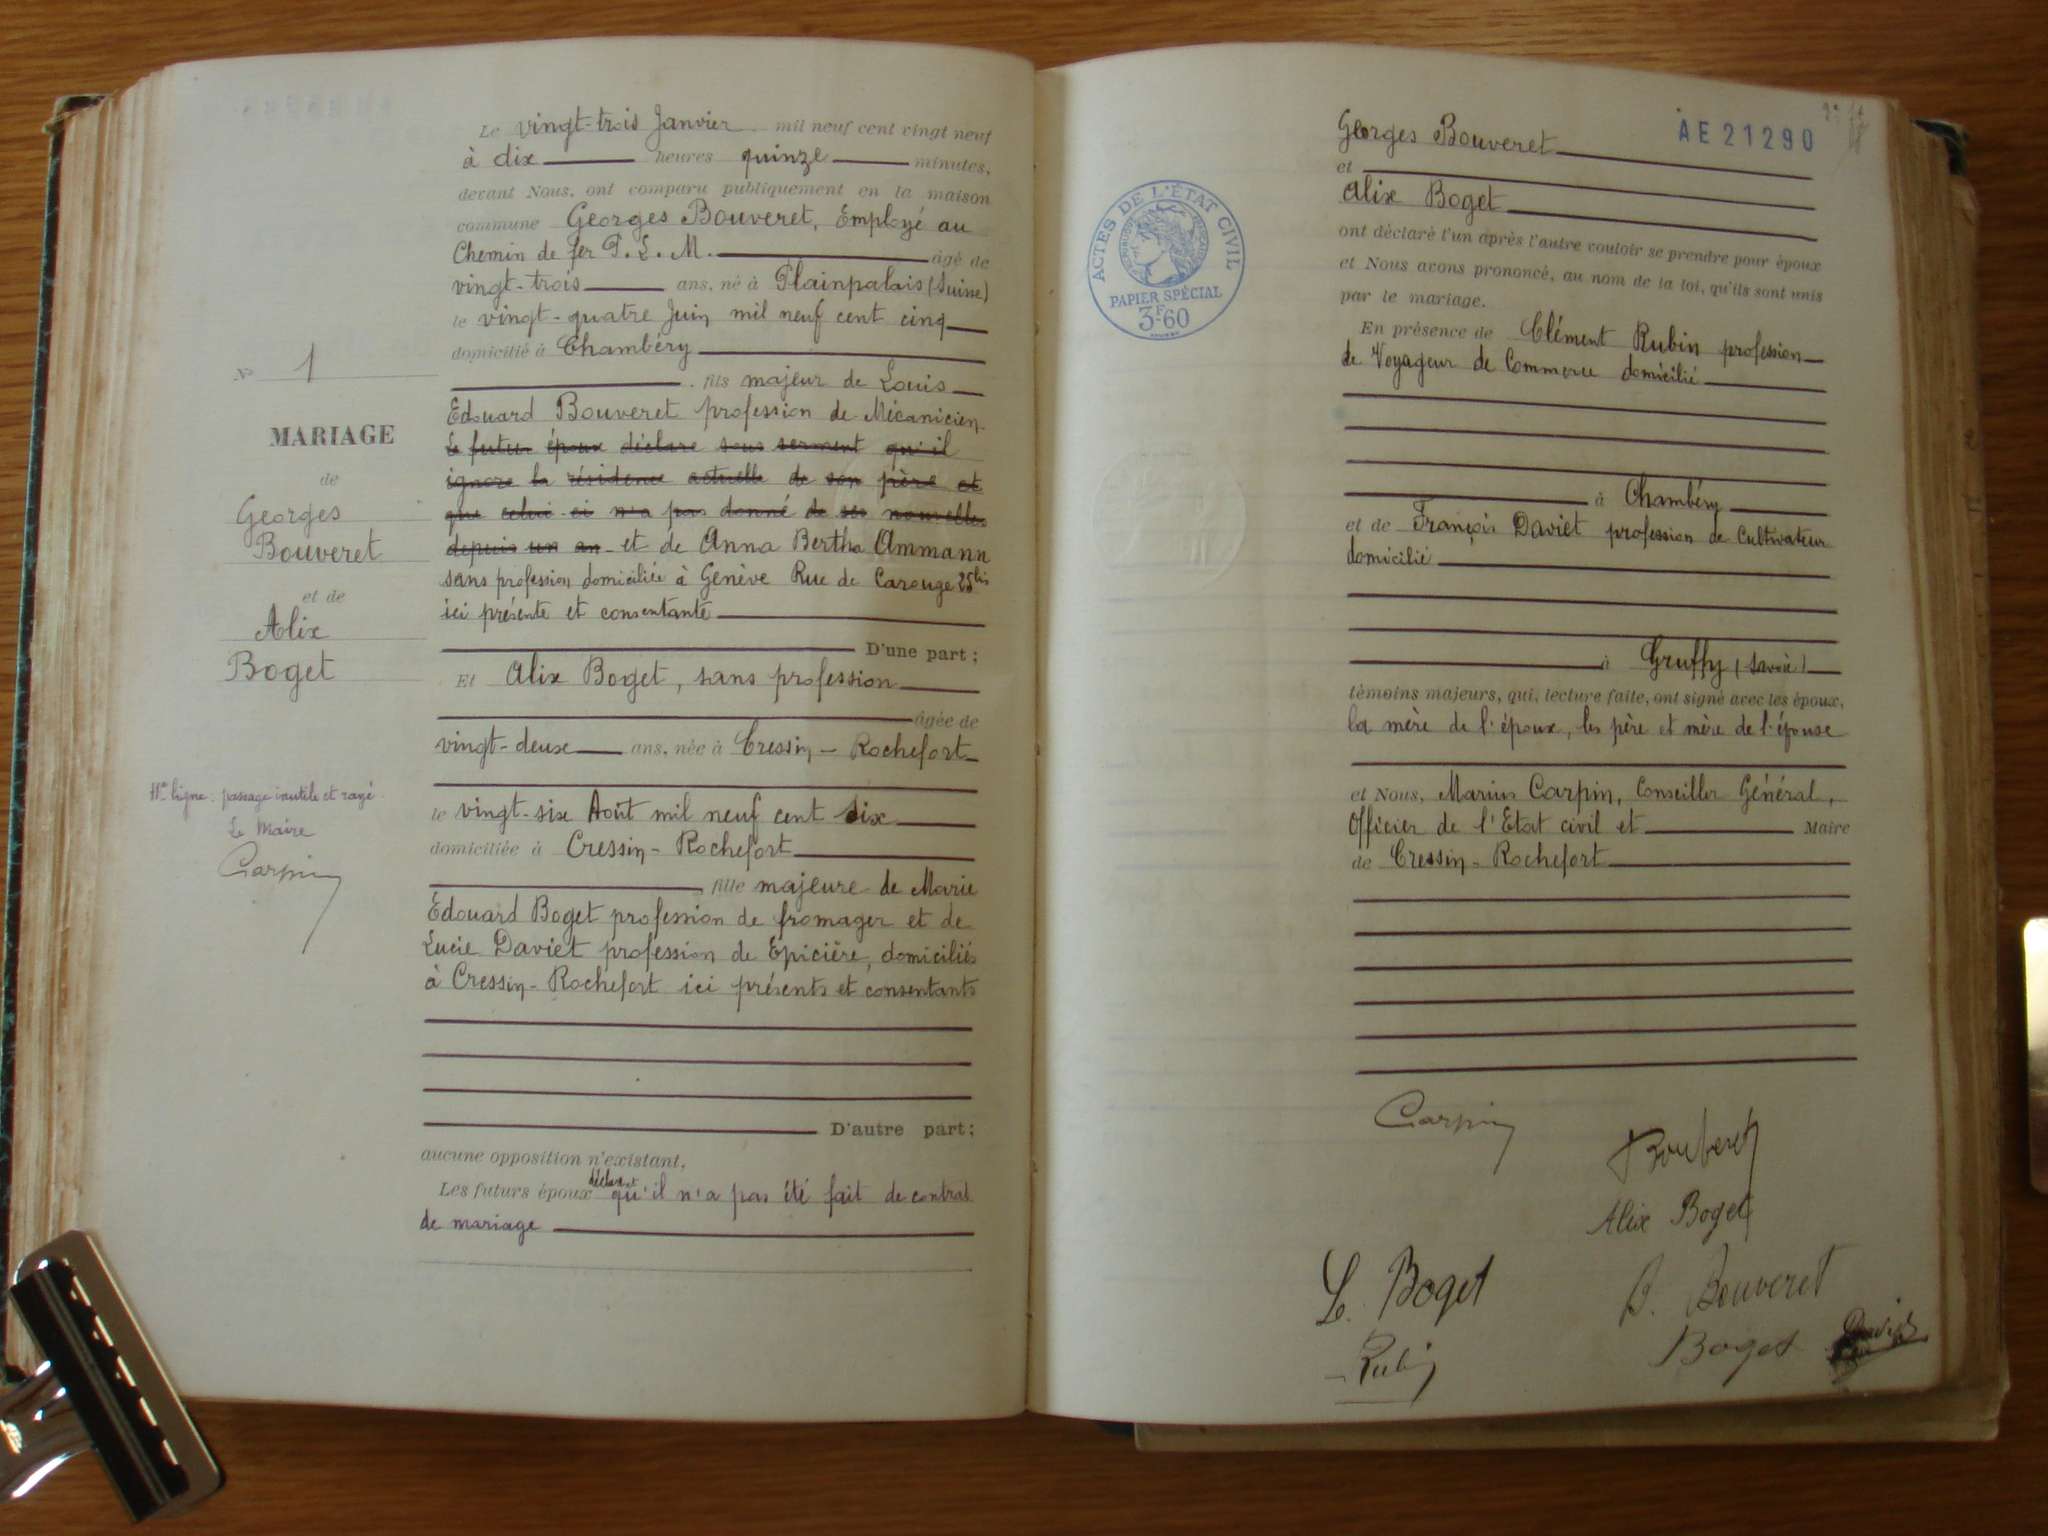 Le vingt-trois Janvier mil neuf cent vingt neuf
à dix heures quinze minutes,
devant Nous, ont comparu publiquement en la maison
commune Georges Bouveret, Employé au
Chemin de fer P. L. M. âgé de
vingt-trois ans, né à Plainpalais (Suisse)
le vingt-quatre Juin mil neuf cent cinq
domicilié à Chambéry
fils majeur de Louis
Edouard Bouveret profession de Mécanicien
Le futur époux déclare sous serment qu'il
ignore la résidence actuelle de son père et
que celui-ci n'a pas donné de ses nouvelles
depuis un an et de Anna Bertha Ammann
sans profession domiciliée à Genève Rue de Carouge 25bis
ici présente et consentante
D'une part ;
Et Alix Boget, sans profession
âgée de
vingt-deux ans, née à Cressin-Rochefort
le vingt-six Août mil neuf cent six
domiciliée à Cressin-Rochefort
fille majeure de Marie
Edouard Boget profession de fromager et de
Lucie Daviet profession de Epicière, domiciliés
à Cressin-Rochefort ici présents et consentants
D'autre part ;
aucune opposition n'existant,
déclarent
Les futurs époux qu'il n'a pas été fait de contrat
de mariage
No 1
MARIAGE
de
Georges
Bouveret
et de
Alix
Boget
11e ligne : passage inutile et rayé
Le Maire
Carpin
AE 21290
Georges Bouveret
et
Alix Boget
ont déclaré l'un après l'autre vouloir se prendre pour époux
et Nous avons prononcé, au nom de la loi, qu'ils sont unis
par le mariage.
En présence de Clément Rubin profession
de Voyageur de Commerce domicilié
à Chambéry
et de François Daviet profession de Cultivateur
domicilié
à Gruffy (Savoie)
témoins majeurs, qui, lecture faite, ont signé avec les époux,
la mère de l'époux, les père et mère de l'épouse
et Nous, Marius Carpin, Conseiller Général,
Officier de l'Etat civil et Maire
de Cressin-Rochefort
ACTES DE L'ÉTAT CIVIL
RÉPUBLIQUE FRANÇAISE
PAPIER SPÉCIAL
3F60
Carpin
Bouveret
Alix Boget
L. Boget
B. Bouveret
Rubin
Boget
Daviet